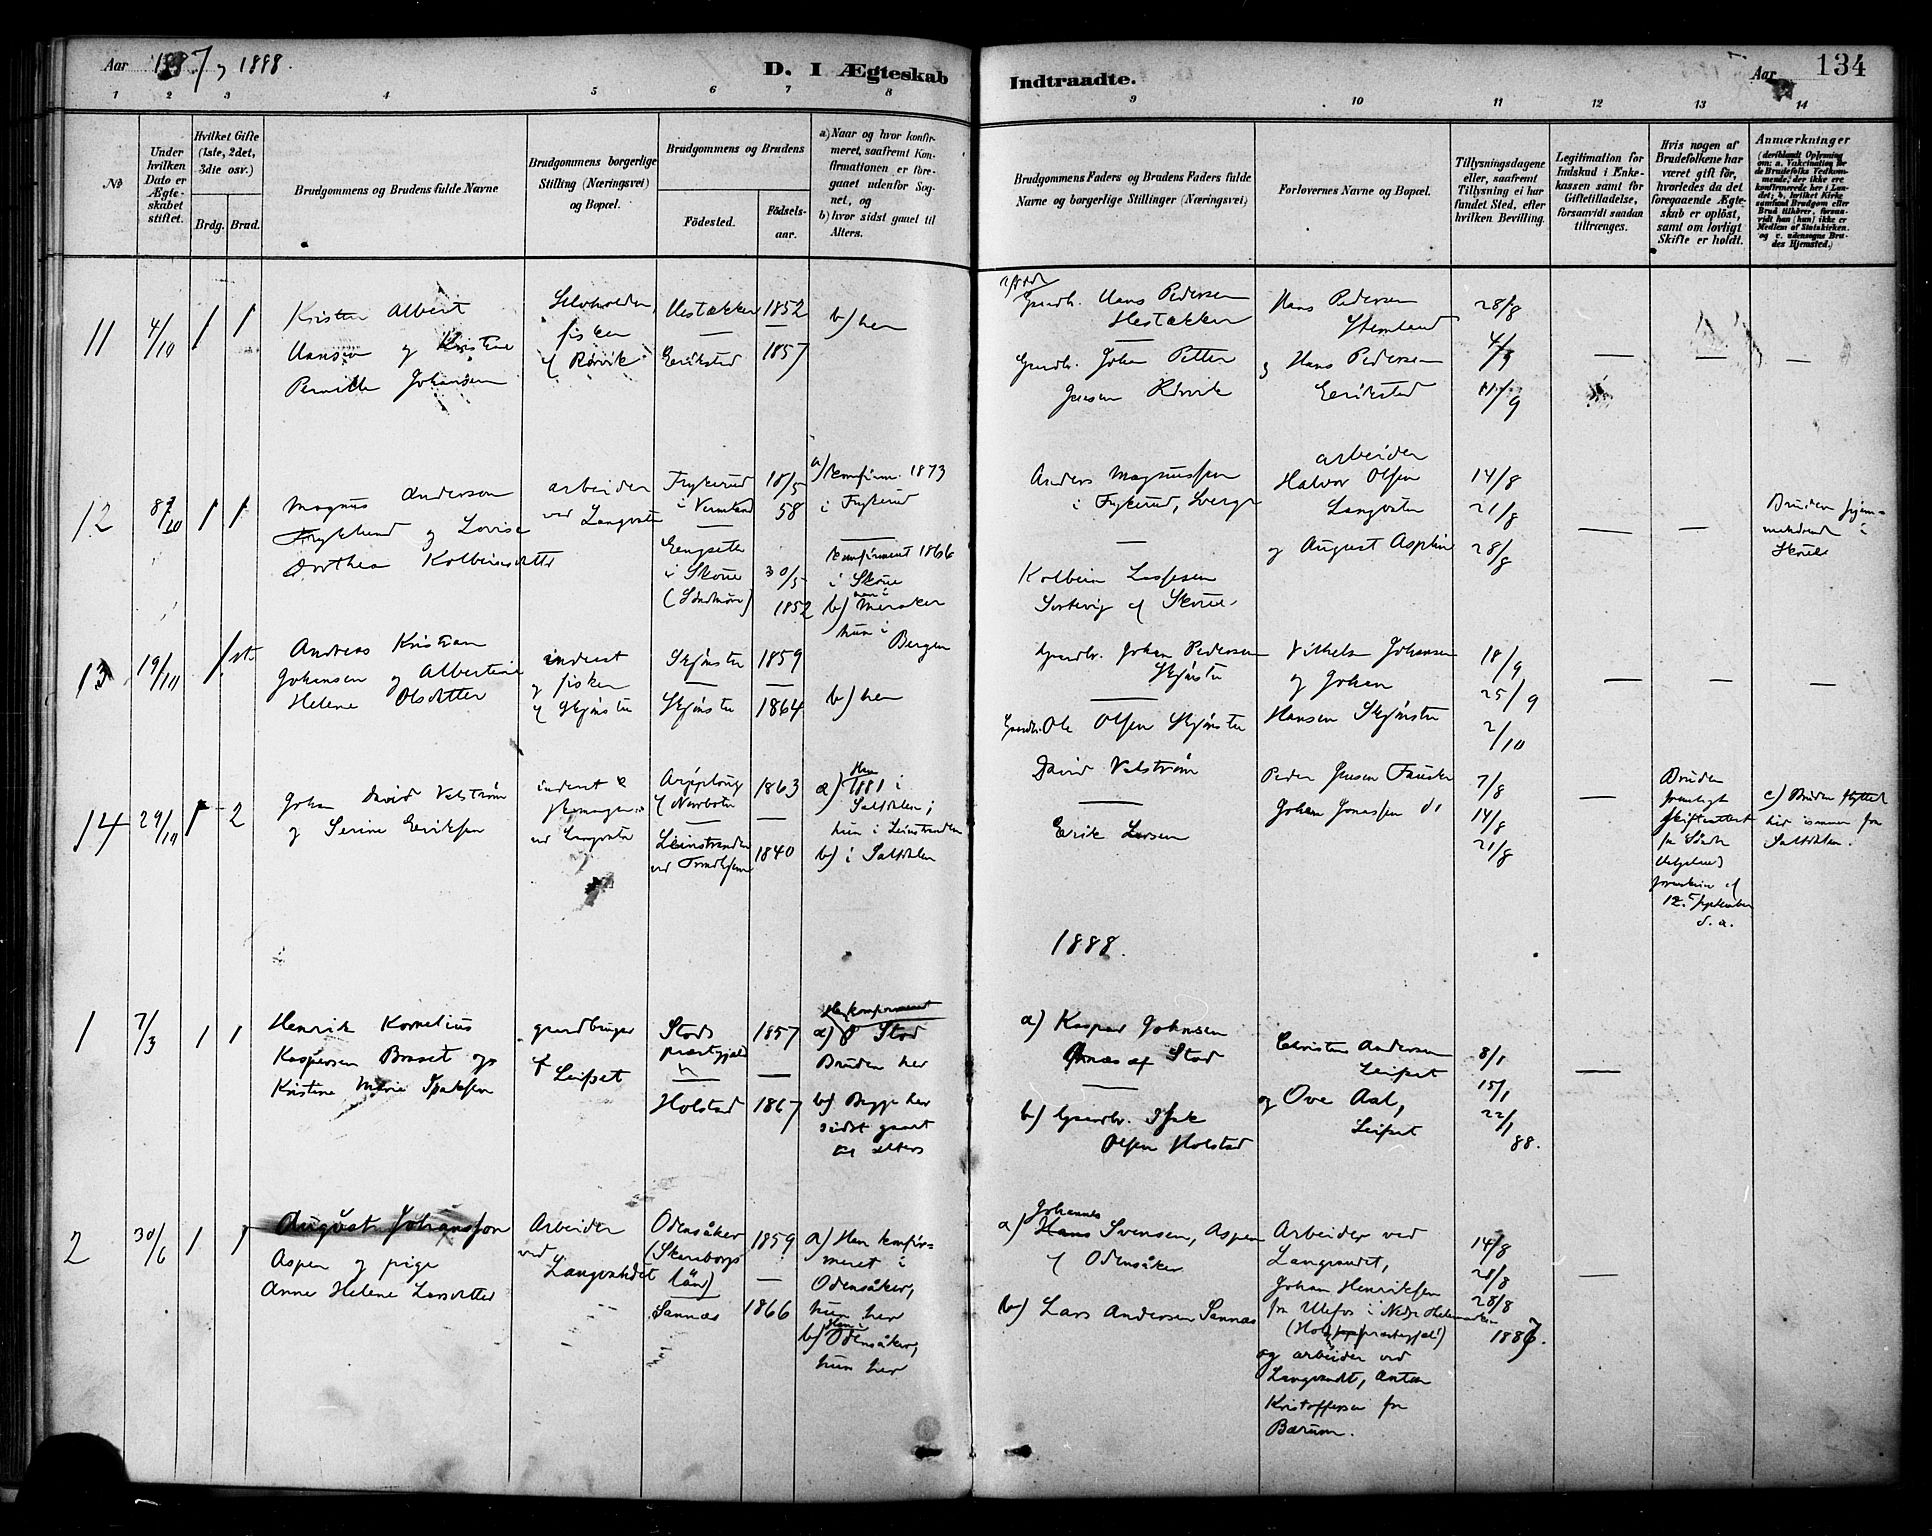 Aar 1887 og 1888.
D. I Ægteskab Indtraadte.
Aar
134
1 2 3 4 5 6 7 8 9 10 11 12 13 14
No
Under hvilken Dato er Ægteskabet stiftet.
Hvilket Gifte (1ste, 2det, 3die osv.)
Brdg. Brud.
Brudgommens og Brudens fulde Navne
Brudgommens borgerlige Stilling (Næringsvei) og Bopæl.
Brudgommens og Brudens
Fødested.
Fødselsaar.
a) Naar og hvor konfirmeret, saafremt Konfirmationen er foregaaet udenfor Sognet, og
b) hvor sidst gaaet til Alters.
Brudgommens Faders og Brudens Faders fulde Navne og borgerlige Stillinger (Næringsvei)
Forlovernes Navne og Bopæl.
Tillysningsdagene eller, saafremt Tillysning ei har fundet Sted, efter hvilken Bevilling.
Legitimation for Indskud i Enkekassen samt for Giftetilladelse, forsaavidt saadan tiltrænges.
Hvis nogen af Brudefolkene har været gift før, hvorledes da det foregaaende Ægteskab er opløst, samt om lovligt Skifte er holdt.
Anmærkninger
(deriblandt Oplysning om: a. Vakcination for de Brudefolks Vedkommende, der ikke ere konfirmerede her i Landet; b. hvilket Kirkesamfund Brudgom eller Brud tilhører, forsaavidt han (hun) ikke er Medlem af Statskirken. og c. udensogns Brudes Hjemsted.)
11 4/10 1 1
Kristen Albert
Hansen og Kristine
Pernille Johansen
Selvholder,
fisker
/ Rørvik
Hestækker 1852
Erikstad 1857
b) her
Gaardb. Hans Pedersen
Hestækker
Gaardb. Johan Petter
Jensen Rørvik
Hans Pedersen
og Hans Pedersen
Erikstad
28/8
4/9
11/9
12 8/10 1 1
Magnus Anderson
Fryklund og Lovise
Dorthea Kolbeinsdatter
arbeider
ved Langvatn
Frykerud
i Vermland
18/5
58
i Skoue
(Søndmøre)
30/5
1852
a) konfirm. 1873
i Frykerud
konfirmeret 1866
i Skoue
b) Meraker
hun i
Bergen
Anders Magnussen
i Frykerud, Sverge
Kolbein Lassesen
arbeider
Halvor Olsen
Langvatn
og August Asplin
14/8
21/8
28/8
13 19/10
Andreas Kristian
Johansen og Albertine
Helene Olsdatter
inderst
og fisker
/ Skjønstu
Skjønstu 1859
Skjønstu 1864
b) her
Gaardbr. Johan Pedersen
Skjønstu
Gaardb. Ole Olsen Skjønstu
Vilhelm Johansen
og Johan
Hansen Skjønstu
18/9
25/9
2/10
14 29/10 1 2
Johan David Velstrøm
og Serine Eriksen
inderst &
ved Langvatn
Arjeploug
/ Norrbotn
1863
Leinstranden
ved Trondhjem
1840
a) Han 1881 i
Saltdalen;
hun i Leinstranden
b) i Saltdalen
David Velstrøm
Erik Larsen
Peder Jensen Fauske
Johan Jonassen
7/8
14/8
21/8
Bruden
12. September
d. a.
c) Bruden flyttet
hid ismmer fra
Saltdalen.
1888.
1 7/3 1 1
Henrik Kornelius
Kaspersen Braset og
Kristine Marie Isaksen
gaardbruger
/ Leifset
Stods
præstegjeld
1857
Holstad 1867
a) Stod
Bruden her
b) Begge her
sidst gaaet
til alters
a) Kaspar Johnsen
af Stod
b) Gaardbr. Isak
Olsen Holstad
Christen Andersen
Leifset
og Ove Aal,
Leifset
8/1
15/1
22/1
88.
2 30/6 1 1
August Johansson
Aspen og pige
Anne Helene Larsdatter
Arbeider
ved
Langvandet
Odensåker
(Skaraborgs
län)
1859
Sannæs 1866
a) Han konfirmeret
i
Odensåker,
hun her
b) Han i Odensåker,
hun her
a) Johannes Svensen, Aspen
/ Odensåker
b) Lars Andersen Sannæs
Arbeider ved
Langvandet,
Johan Henriksen
fra Ulefos i Nedre Thelemarken
og arbeider ved
Langvandet, Anton
Kristoffersen fra
Bærum.
14/8
28/8
1887.